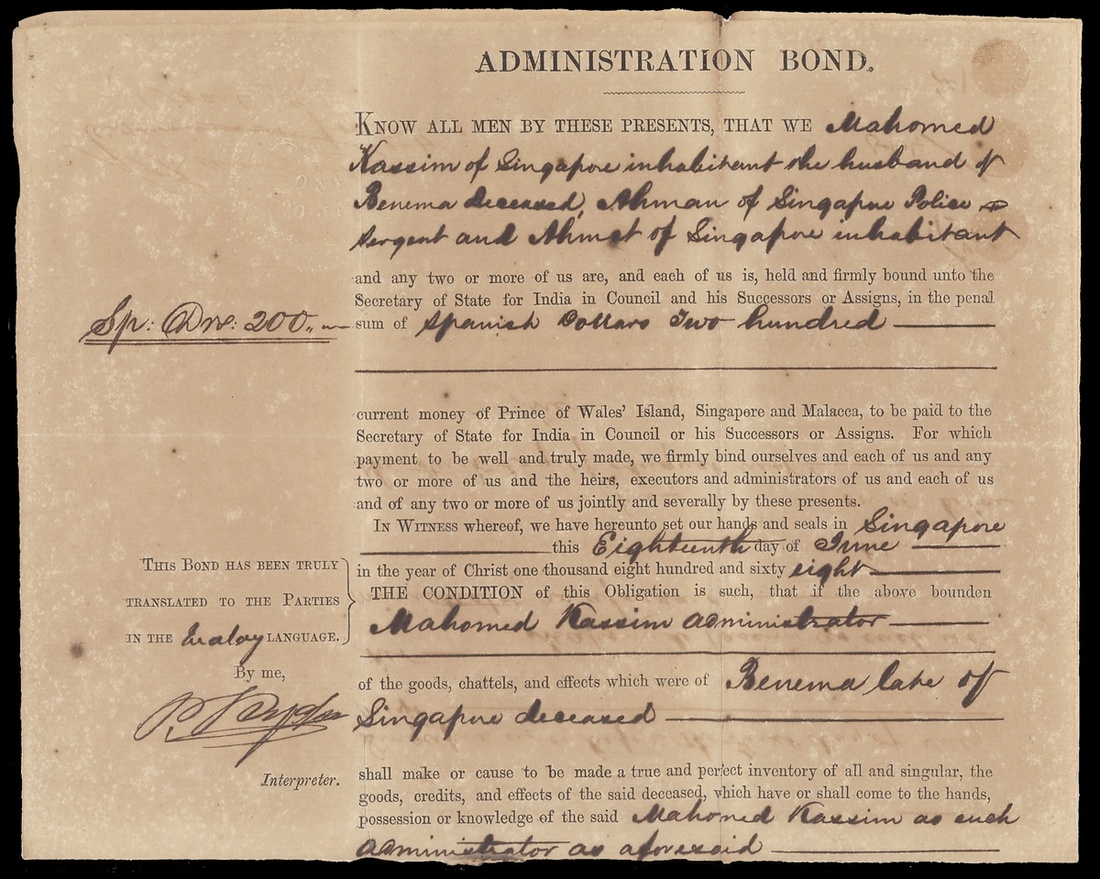 ADMINISTRATION BOND.
KNOW ALL MEN BY THESE PRESENTS, THAT WE Mahomed
Kassim of Singapore inhabitant the husband of
Benema deceased, Ahman of Singapore Police
Sergent and Ahmet of Singapore inhabitant
and any two or more of us are, and each of us is, held and firmly bound unto the
Secretary of State for India in Council and his Successors or Assigns, in the penal
Sp: Drs: 200
sum of Spanish Dollars Two hundred
current money of Prince of Wales' Island, Singapore and Malacca, to be paid to the
Secretary of State for India in Council or his Successors or Assigns. For which
payment to be well and truly made, we firmly bind ourselves and each of us and any
two or more of us and the heirs, executors and administrators of us and each of us
and of any two or more of us jointly and severally by these presents.
IN WITNESS whereof, we have hereunto set our hands and seals in Singapore
this Eighteenth day of June
in the year of Christ one thousand eight hundred and sixty eight
THE CONDITION of this Obligation is such, that if the above bounden
Mahomed Kassim administrator
THIS BOND HAS BEEN TRULY
TRANSLATED TO THE PARTIES
IN THE Malay LANGUAGE.
By me,
Interpreter.
of the goods, chattels, and effects which were of Benema late of
Singapore deceased
shall make or cause to be made a true and perfect inventory of all and singular, the
goods, credits, and effects of the said deceased, which have or shall come to the hands,
possession or knowledge of the said Mahomed Kassim as such
administrator as aforesaid